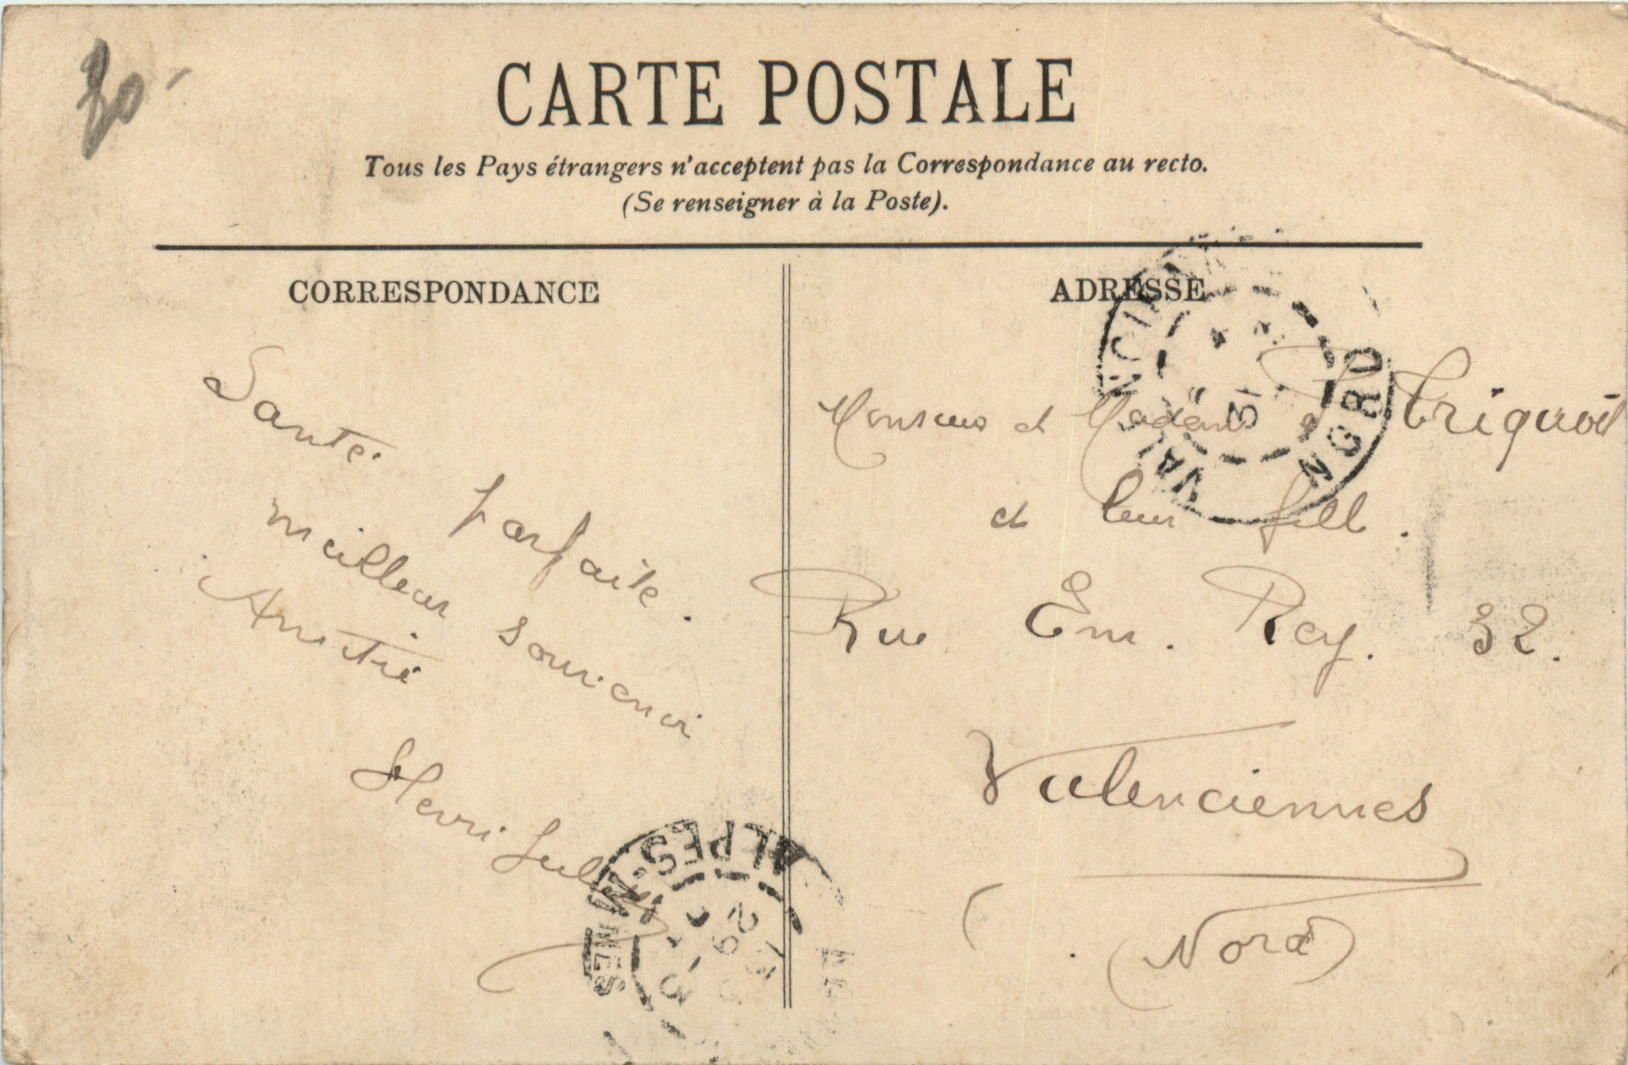 30-
CARTE POSTALE
Tous les Pays étrangers n'acceptent pas la Correspondance au recto.
(Se renseigner à la Poste).
CORRESPONDANCE
Santé parfaite.
meilleur souvenir
Amitié
Henri
ALPES-MMES
29
ADRESSE
Monsieur et Madame
et leur fille.
Rue Em. Rey. 32.
Valenciennes
(Nord)
31
NORD